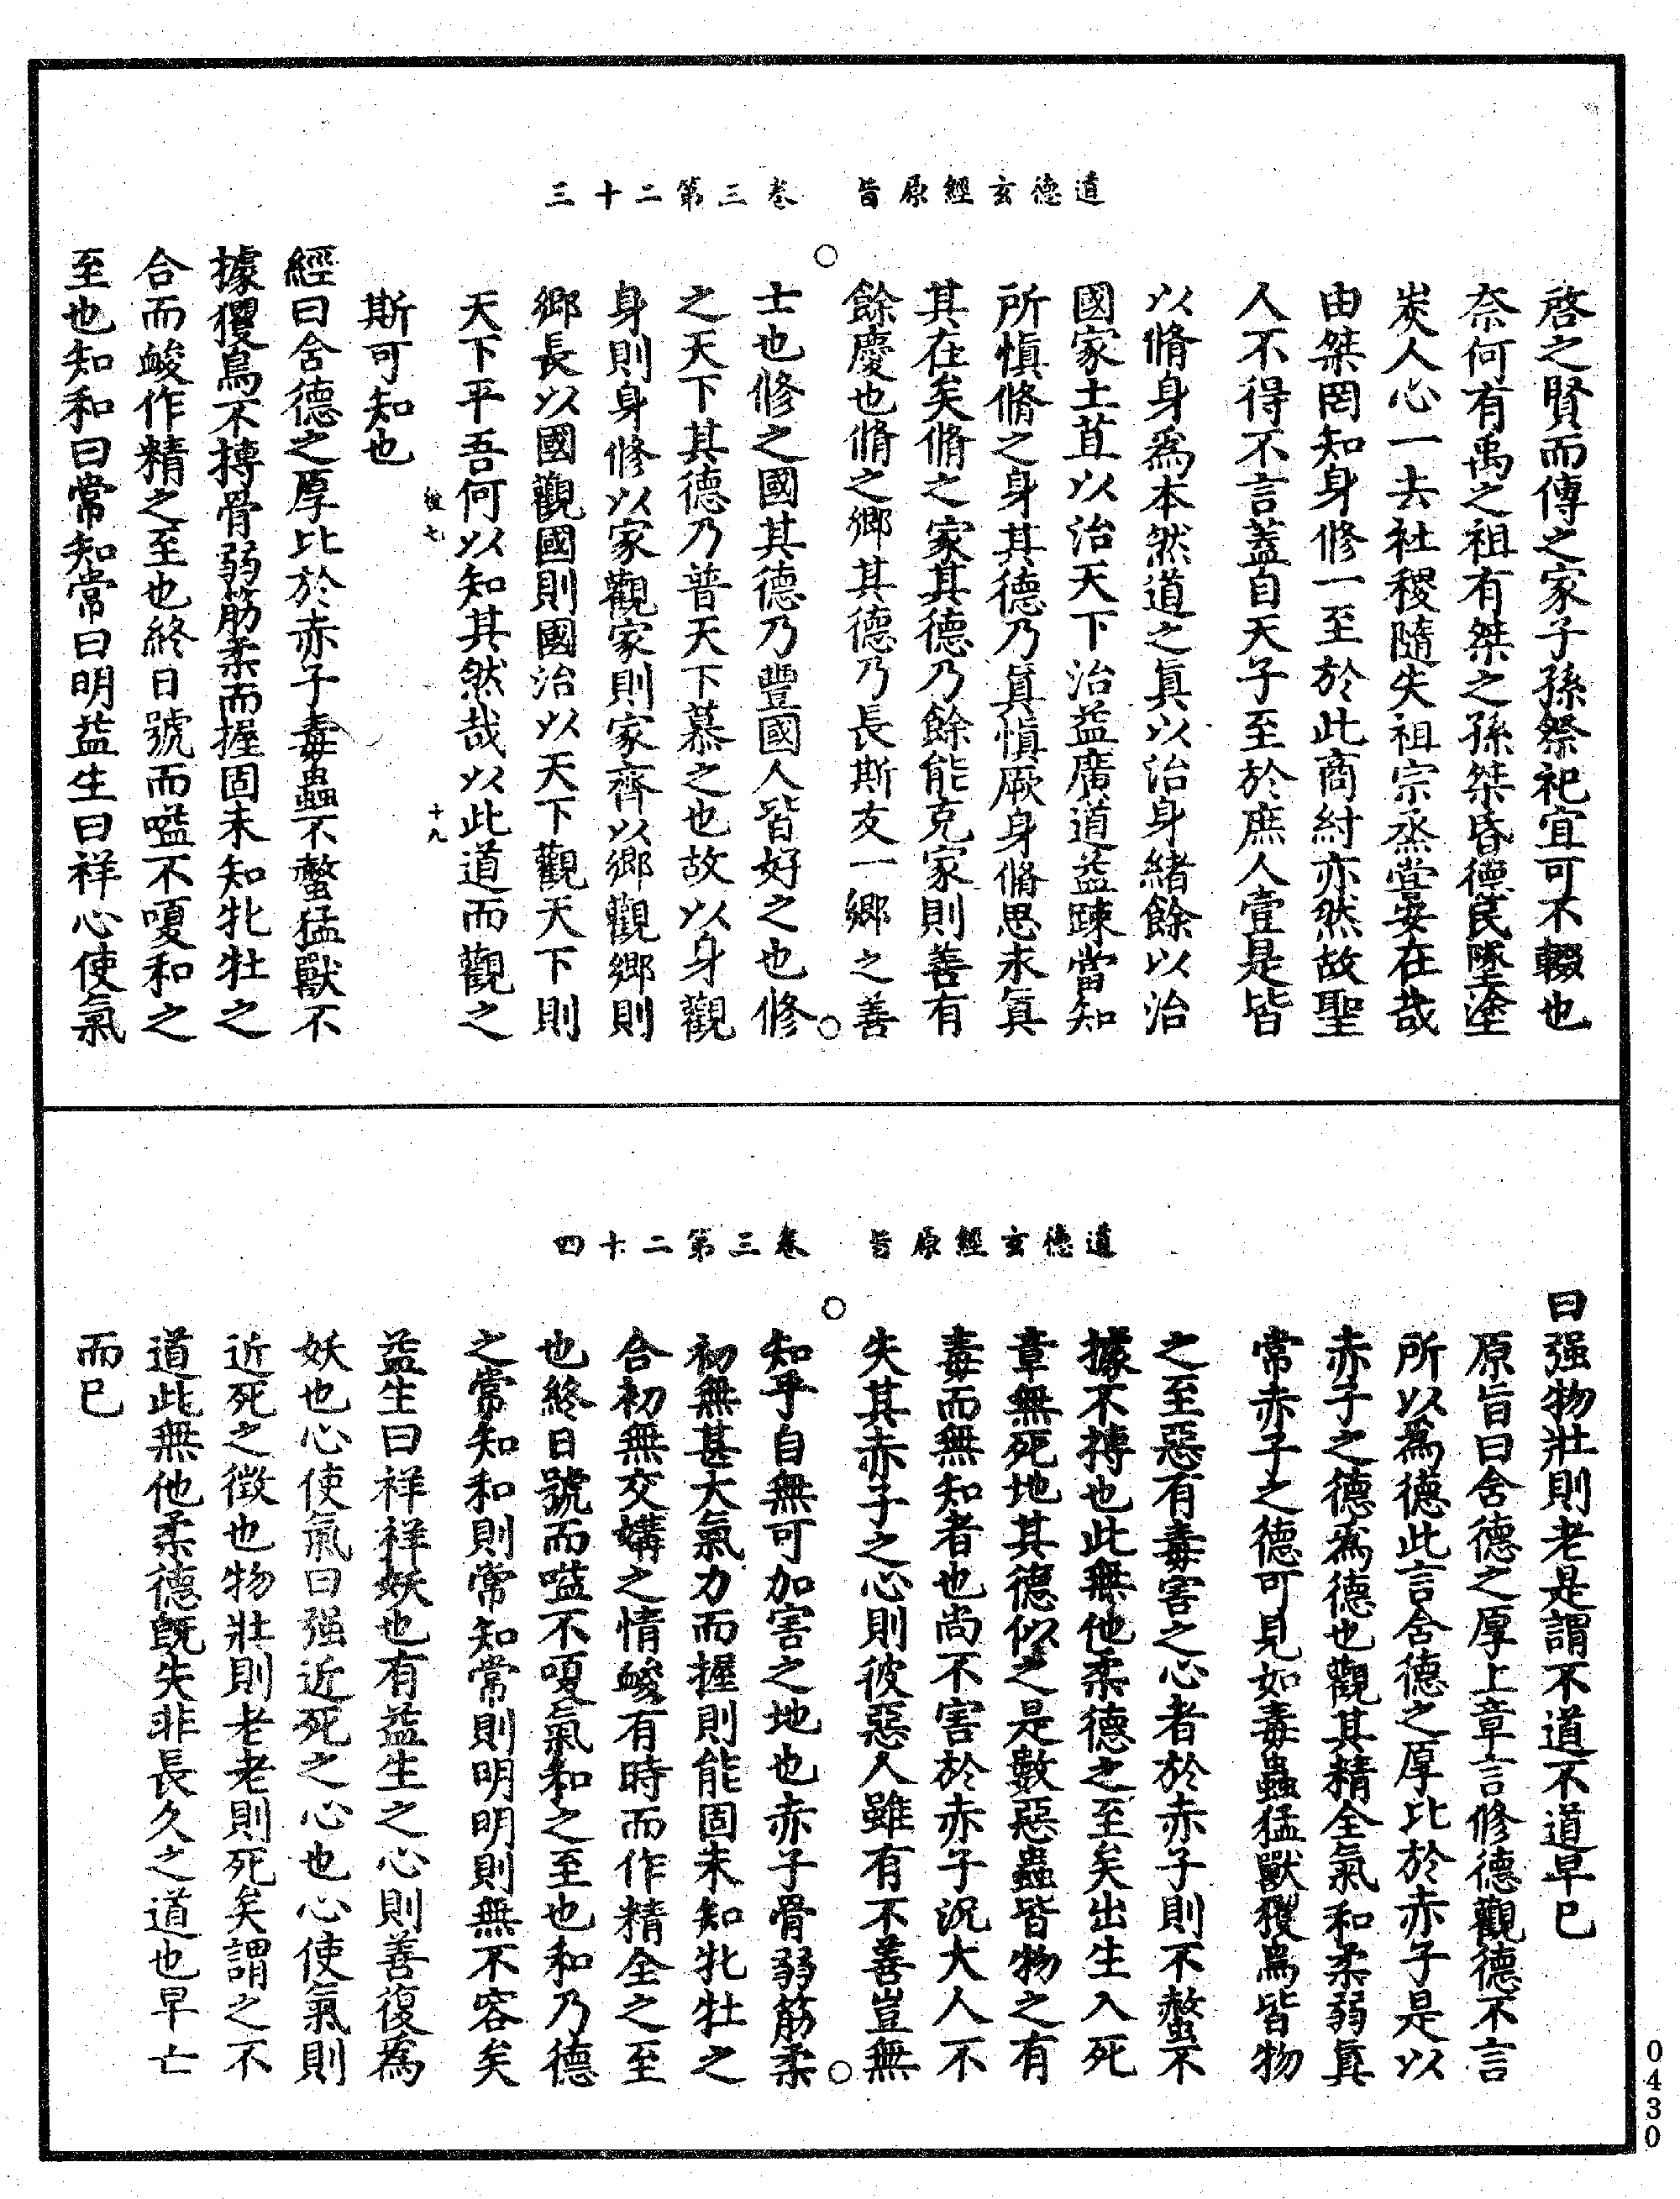 道德玄經原旨　卷三第二十三
啓之賢而傳之家子孫祭祀宜可不輟也
奈何有禹之祖有桀之孫桀昏德民墜塗
炭人心一去社稷隨失祖宗烝嘗安在哉
由桀罔知身修一至於此商紂亦然故聖
人不得不言蓋自天子至於庶人壹是皆
以脩身爲本然道之眞以治身緒餘以治
國家土苴以治天下治益廣道益踈當知
所愼脩之身其德乃眞愼厥身脩思永眞
其在矣脩之家其德乃餘能克家則善有
餘慶也脩之鄉其德乃長斯友一鄉之善
士也修之國其德乃豐國人皆好之也修
之天下其德乃普天下慕之也故以身觀
身則身修以家觀家則家齊以鄉觀鄉則
鄉長以國觀國則國治以天下觀天下則
天下平吾何以知其然哉以此道而觀之
斯可知也
十九
經曰含德之厚比於赤子毒蟲不螫猛獸不
據玃鳥不搏骨弱筋柔而握固未知牝牡之
合而峻作精之至也終日號而嗌不嗄和之
至也知和曰常知常曰明益生曰祥心使氣
道德玄經原旨　卷三第二十四
曰强物壯則老是謂不道不道早已
原旨曰含德之厚上章言修德觀德不言
所以爲德此言含德之厚比於赤子是以
赤子之德爲德也觀其精全氣和柔弱眞
常赤子之德可見如毒蟲猛獸玃鳥皆物
之至惡有毒害之心者於赤子則不螫不
據不搏也此無他柔德之至矣出生入死
章無死地其德似之是數惡蟲皆物之有
毒而無知者也尚不害於赤子況大人不
失其赤子之心則彼惡人雖有不善豈無
知乎自無可加害之地也赤子骨弱筋柔
初無甚大氣力而握則能固未知牝牡之
合初無交媾之情峻有時而作精全之至
也終日號而嗌不嗄氣和之至也和乃德
之常知和則常知常則明明則無不容矣
益生曰祥祥妖也有益生之心則善復為
妖也心使氣曰强近死之心也心使氣則
近死之徵也物壯則老老則死矣謂之不
道此無他柔德旣失非長久之道也早亡
而已
0430